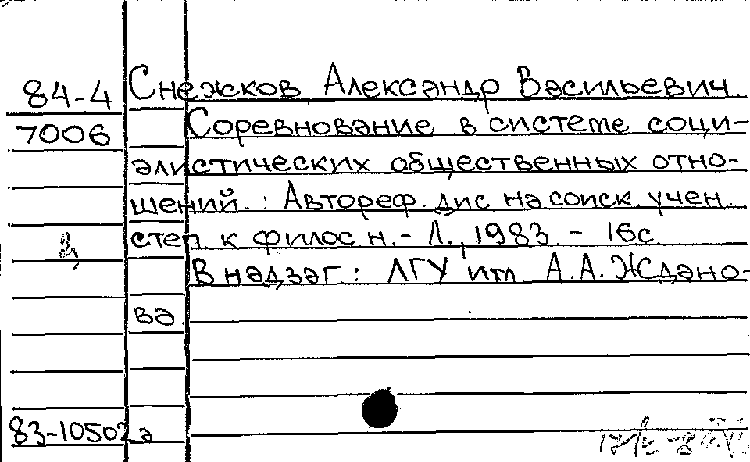 84-4 Снежков Александр Васильевич
7006 Соревнование в системе соци-
алистических общественных отно-
шений : Автореф. дис на соиск. учен
степ к филос н. - Л., 1983 - 16с.
В надзаг: ЛГУ им А.А. Ждано-
ва
83-10502а